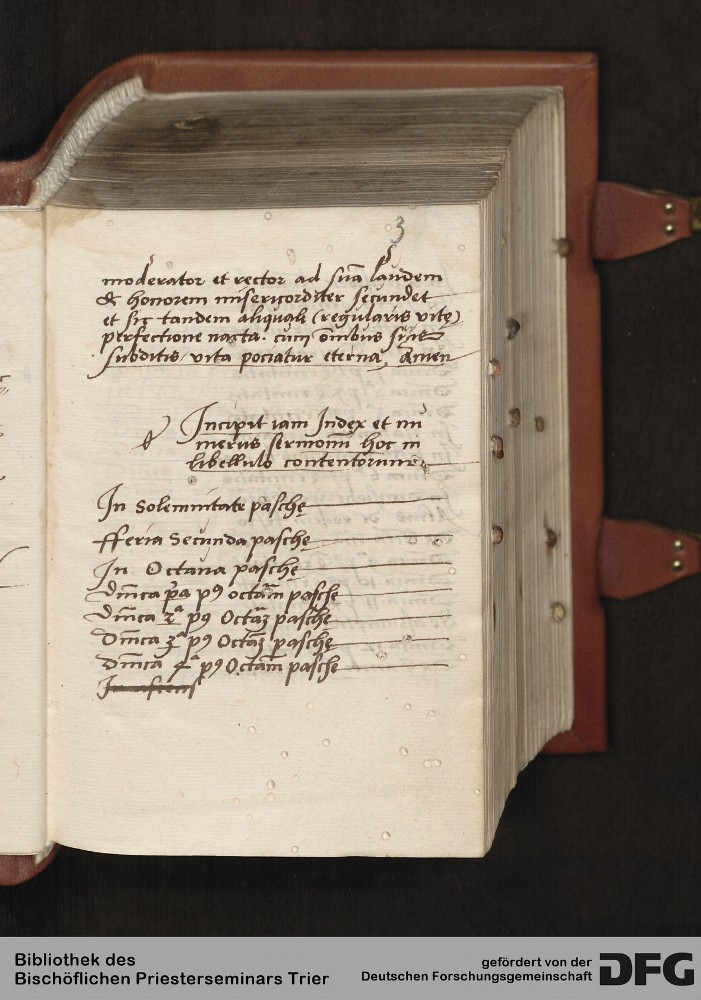 3
moderator et rector ad suā laudem
& honorem misericorditer secundet
et sic tandem aliquali (regularis vitę)
perfectione nacta. cum ōnibus
subditis vita pociatur eterna, Amen
Incipit iam Index et nu
merus sermonū hoc in
libellulo contentorum
In Solemnitate paschę
fferia Secunda paschę
In Octaua paschę
Dn̄ica p̄a pꝰ octāuā paschę
Dn̄ica 2ᵃ pꝰ Octāꝫ paschę
Dn̄ica 3ᵃ pꝰ Octāꝫ paschę
Dn̄ica 4ᵃ pꝰ Octām paschę
Bibliothek des
Bischöflichen Priesterseminars Trier
gefördert von der
Deutschen Forschungsgemeinschaft
DFG